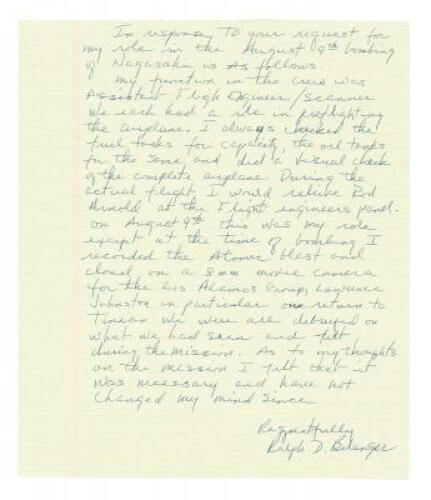 In response to your request for
my role in the August 9th bombing
of Nagasaki is as follows.
My function in the crew was
Assistant Fligh Engineer/Scanner
We each had a role in preflighting
the airplane. I always checked the
fuel tanks for capacity, the oil tanks
for the same, and did a visual check
of the complete airplane. During the
actual flight, I would relieve Rod
Arnold at the flight engineers panel.
On August 9th this was my role
except at the time of bombing I
recorded the Atomic blast and
cloud on a 8mm movie camera
for the Los Alamos Group, Lawrence
Johnston in particular one return to
Tinian we were all debrifed on
what we had seen and felt
during the mission. As to my thoughts
on the mission I felt that it
was necessary and have not
changed my mind since
Respectfully
Ralph D. Belanger